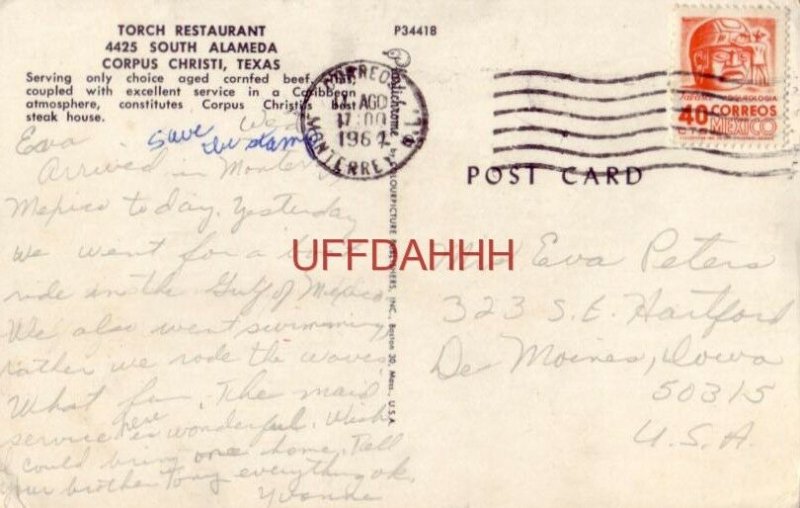 TORCH RESTAURANT
4425 SOUTH ALAMEDA
CORPUS CHRISTI, TEXAS
Serving only choice aged cornfed beef,
coupled with excellent service in a Caribbean
atmosphere, constitutes Corpus Christi's Best
steak house.
P34418
Plastichrome by COLOURPICTURE PUBLISHERS, INC., Boston 30, Mass., U.S.A.
CORREOS
AGO
17:00
196
MONTERREY
40 CORREOS
MEXICO
POST CARD
Save the stamp
Wed
Eva
Arrived in Monterrey
Mexico today. Yesterday
we went for a boat
ride in the Gulf of Mexico
We also went swimming,
rather we rode the waves.
What fun. The maid
service here is wonderful. Wish
I could bring one home. Tell
your brother everything ok.
Yvonne
Eva Peters
323 S.E. Hartford
Des Moines, Iowa
50315
U.S.A.
UFFDAHHH